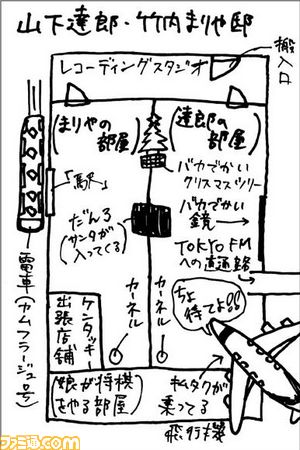 山下達郎・竹内まりや邸
搬入口
レコーディングスタジオ
(まりやの部屋)
(達郎の
部屋)
バカでかい
クリスマスツリー
「駅」
バカでかい
鏡
だんろ
(サンタが
入ってくる)
TOKYO FM
への直通路
電車(カムフラージュ号)
ケンタッキー
出張店舗
カーネル
カーネル
ちょ
待てよ!!
(娘が将棋
をやる部屋)
キムタクが
乗ってる
飛行機
ファミ通.com